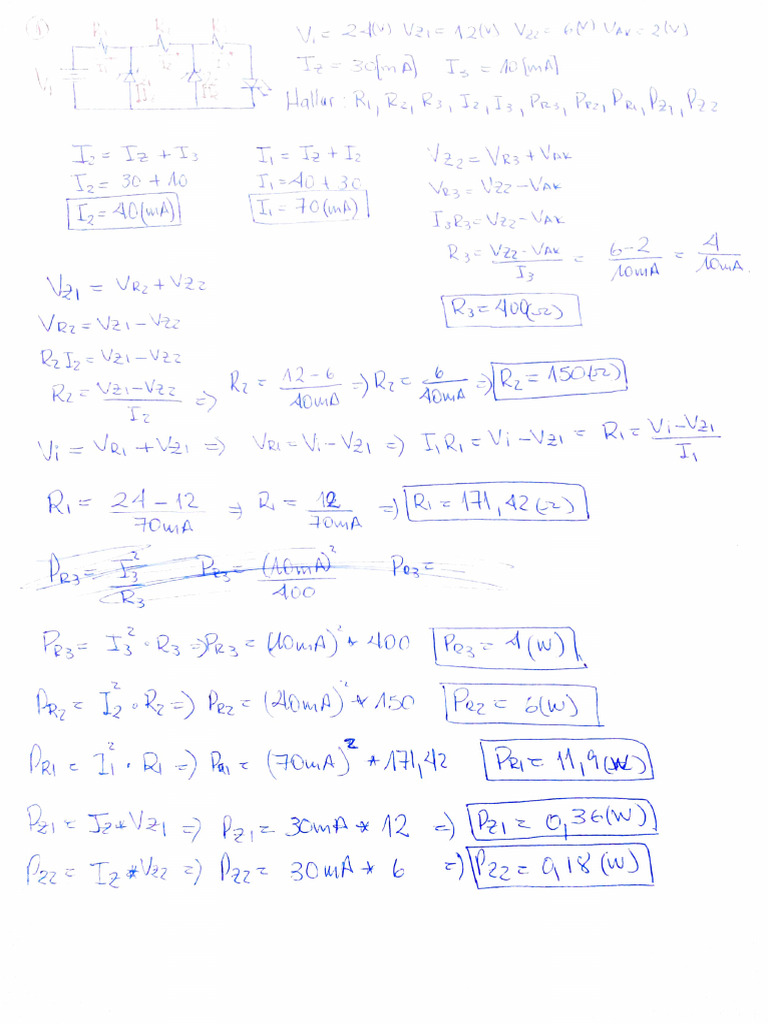 1
R1 R2 R3
Vi
Vi = 24(V) VZ1 = 12(V) VZ2 = 6(V) VAK = 2(V)
IZ = 30[mA] I3 = 10[mA]
Hallar: R1, R2, R3, I2, I3, PR3, PR2, PR1, PZ1, PZ2
I2 = IZ + I3
I2 = 30 + 10
I2 = 40(mA)
I1 = IZ + I2
I1 = 40 + 30
I1 = 70(mA)
VZ2 = VR3 + VAK
VR3 = VZ2 - VAK
I3R3 = VZ2 - VAK
R3 = (VZ2 - VAK)/I3 = (6-2)/10mA = 4/10mA.
R3 = 400(Ω)
VZ1 = VR2 + VZ2
VR2 = VZ1 - VZ2
R2I2 = VZ1 - VZ2
R2 = (VZ1 - VZ2)/I2 => R2 = (12-6)/40mA => R2 = 6/40mA => R2 = 150(Ω)
Vi = VR1 + VZ1 => VR1 = Vi - VZ1 => I1R1 = Vi - VZ1 = R1 = (Vi - VZ1)/I1
R1 = (24-12)/70mA => R1 = 12/70mA => R1 = 171,42(Ω)
PR3 = I3²/R3 PR3 = (10mA)²/400 PR3 =
PR3 = I3² · R3 => PR3 = (10mA)² * 400 PR3 = 4(W)
PR2 = I2² · R2 => PR2 = (40mA)² * 150 PR2 = 6(W)
PR1 = I1² · R1 => PR1 = (70mA)² * 171,42 PR1 = 11,9(W)
PZ1 = IZ*VZ1 => PZ1 = 30mA * 12 => PZ1 = 0,36(W)
PZ2 = IZ*VZ2 => PZ2 = 30mA * 6 => PZ2 = 0,18(W)